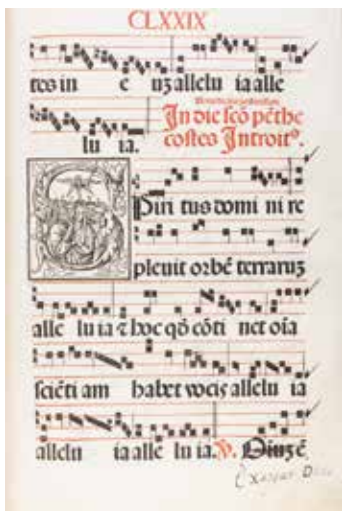 CLXXIX
tes in e uȝ allelu ia alle
lu ia.
In die scō pēthe
costes Introitꝰ.
Spiri tus domi ni re
pleuit orbē terraruȝ
alle lu ia ⁊ hoc qō cōti net oīa
sciēti am habet vocis allelu ia
allelu ia alle lu ia. V.